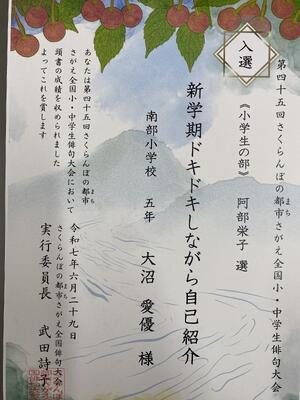 入選
第四十五回さくらんぼの都市さがえ全国小・中学生俳句大会
まち
《小学生の部》 阿部栄子 選
新学期ドキドキしながら自己紹介
南部小学校 五年 大沼愛優 様
あなたは第四十五回さくらんぼの都市
まち
さがえ全国小・中学生俳句大会において
頭書の成績を収められました
よってこれを賞します
令和七年六月二十九日
さくらんぼの都市さがえ全国俳句大会
まち
実行委員長 武田詩子